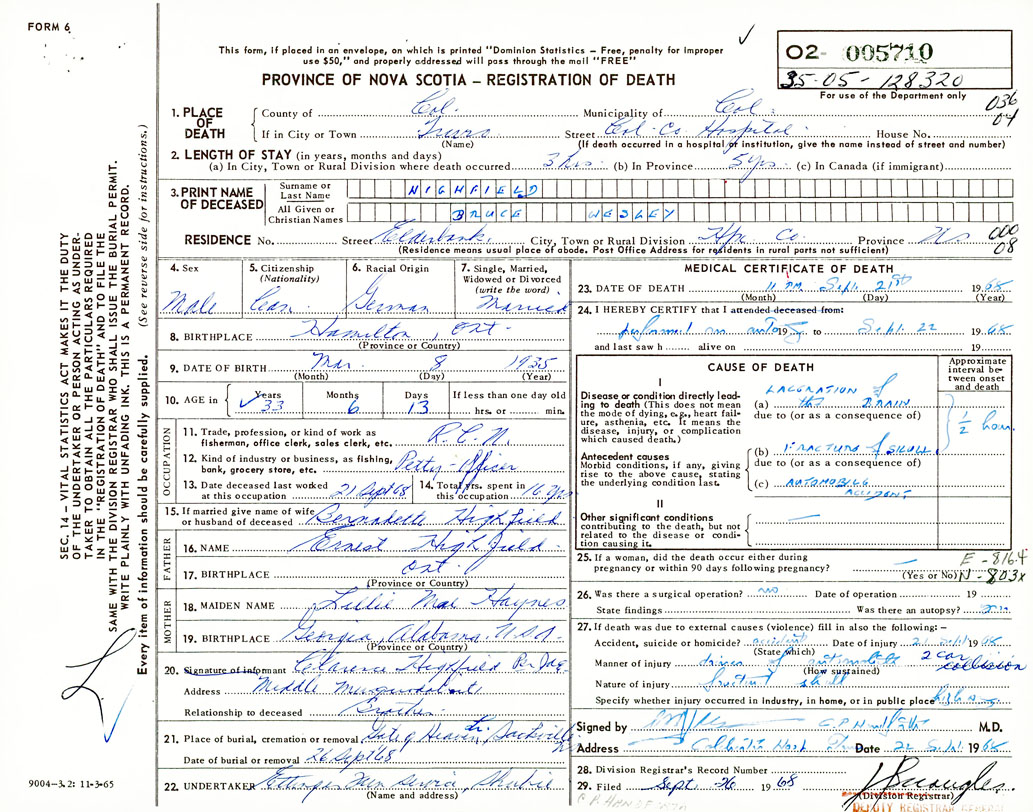 FORM 6
This form, if placed in an envelope, on which is printed "Dominion Statistics – Free, penalty for improper
use $50," and properly addressed will pass through the mail "FREE"
PROVINCE OF NOVA SCOTIA – REGISTRATION OF DEATH
O2- 005710
35-05-128320
For use of the Department only
036
04
1. PLACE OF DEATH
County of Col. Municipality of Col.
If in City or Town Truro Street Col. Co. Hospital House No.
(Name) (If death occurred in a hospital or institution, give the name instead of street and number)
2. LENGTH OF STAY (in years, months and days)
(a) In City, Town or Rural Division where death occurred 3 hrs. (b) In Province 5 yrs. (c) In Canada (if immigrant)
3. PRINT NAME OF DECEASED
Surname or Last Name HIGHFIELD
All Given or Christian Names BRUCE WESLEY
RESIDENCE No. Street Elderbank, City, Town or Rural Division Hfx. Co. Province N.S.
000
08
(Residence means usual place of abode. Post Office Address for residents in rural parts not sufficient)
4. Sex
Male
5. Citizenship
(Nationality)
Can.
6. Racial Origin
German
7. Single, Married,
Widowed or Divorced
(write the word)
Married
8. BIRTHPLACE Hamilton, Ont.
(Province or Country)
9. DATE OF BIRTH Mar. 8 1935
(Month) (Day) (Year)
10. AGE in Years 33 Months 6 Days 13 If less than one day old
hrs. or min.
OCCUPATION
11. Trade, profession, or kind of work as
fisherman, office clerk, sales clerk, etc. R.C.N.
12. Kind of industry or business, as fishing,
bank, grocery store, etc. Petty-Officer
13. Date deceased last worked
at this occupation 21 Sept 68
14. Total yrs. spent in
this occupation 16 yrs
15. If married give name of wife
or husband of deceased Bernadette Highfield
FATHER
16. NAME Ernest Highfield
17. BIRTHPLACE Ont.
(Province or Country)
MOTHER
18. MAIDEN NAME Lillie Mae Haynes
19. BIRTHPLACE Georgia, Alabama. U.S.A.
(Province or Country)
20. Signature of informant Clarence Highfield Per
Address Middle Musquodoboit,
Relationship to deceased Brother
21. Place of burial, cremation or removal Gate of Heaven, Sackville
Date of burial or removal 26 Sept 68
22. UNDERTAKER
(Name and address)
MEDICAL CERTIFICATE OF DEATH
23. DATE OF DEATH 11 PM Sept. 21st 1968
(Month) (Day) (Year)
24. I HEREBY CERTIFY that I attended deceased from:
performed an autopsy 19 to Sept. 22 1968
and last saw h alive on 19
CAUSE OF DEATH
Approximate
interval be-
tween onset
and death
I
Disease or condition directly lead-
ing to death (This does not mean
the mode of dying, e.g., heart fail-
ure, asthenia, etc. It means the
disease, injury, or complication
which caused death.)
(a) LACERATION of the BRAIN
due to (or as a consequence of)
½ hour
Antecedent causes
Morbid conditions, if any, giving
rise to the above cause, stating
the underlying condition last.
(b) FRACTURE of SKULL
due to (or as a consequence of)
(c) AUTOMOBILE
ACCIDENT
II
Other significant conditions
contributing to the death, but not
related to the disease or condi-
tion causing it.
25. If a woman, did the death occur either during
pregnancy or within 90 days following pregnancy?
(Yes or No)
E-816.4
N-803x
26. Was there a surgical operation? no Date of operation 19
State findings Was there an autopsy?
27. If death was due to external causes (violence) fill in also the following:–
Accident, suicide or homicide? accident Date of injury 21 Sept 1968
(State which)
Manner of injury driver of automobile 2 car collision
(How sustained)
Nature of injury skull
Specify whether injury occurred in industry, in home, or in public place highway
Signed by M.D.
Address Colchester Hosp Date 22 Sept. 1968
28. Division Registrar's Record Number
29. Filed Sept. 26 1968
(Division Registrar)
DEPUTY REGISTRAR GENERAL
SEC. 14 – VITAL STATISTICS ACT MAKES IT THE DUTY
OF THE UNDERTAKER OR PERSON ACTING AS UNDER-
TAKER TO OBTAIN ALL THE PARTICULARS REQUIRED
IN THE "REGISTRATION OF DEATH" AND TO FILE THE
SAME WITH THE DIVISION REGISTRAR WHO SHALL ISSUE THE BURIAL PERMIT.
WRITE PLAINLY WITH UNFADING INK. THIS IS A PERMANENT RECORD.
Every item of information should be carefully supplied. (See reverse side for instructions.)
9004-3.2: 11-3-65